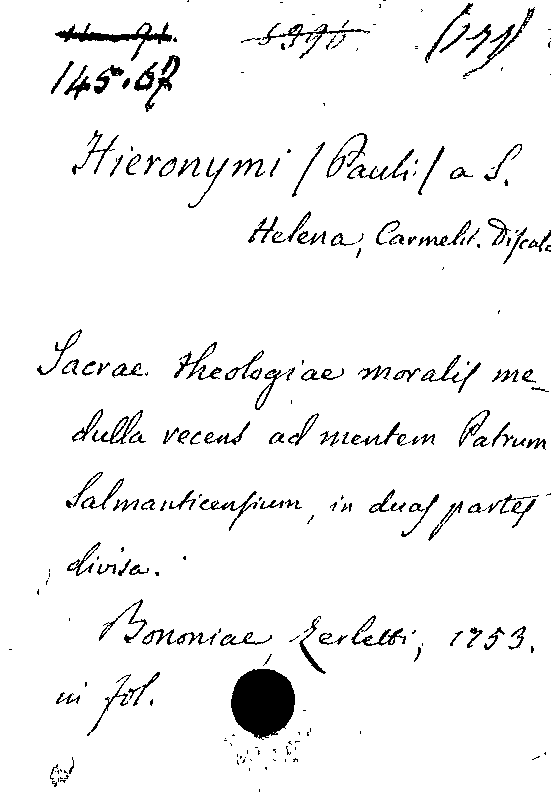 5396 (171)
145.67
Hieronymi /Pauli:/ a S.
Helena, Carmelit. Diſcalc
Sacrae theologiae moraliſ me-
dulla recens ad mentem Patrum
Salmanticenſium, in duaſ parteſ
divisa.
Bononiae, Zerletti, 1753.
in fol.